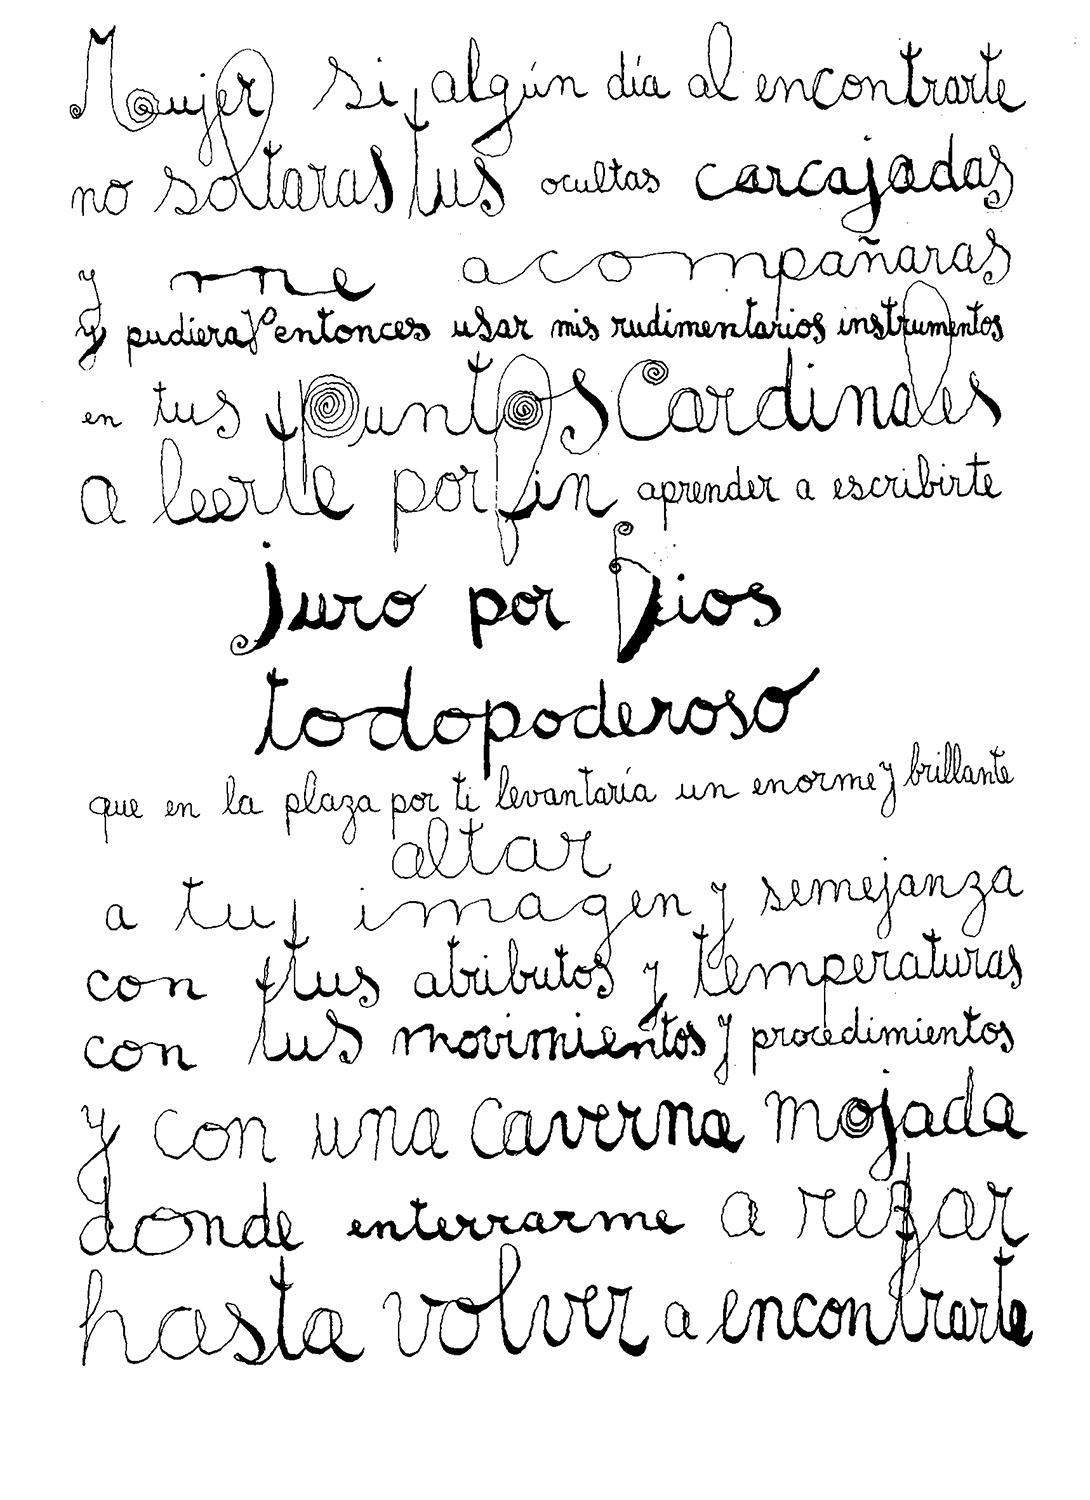 Mujer si algún día al encontrarte
no soltaras tus ocultas carcajadas
y me acompañaras
y pudiera yo entonces usar mis rudimentarios instrumentos
en tus puntos Cardinales
a leerte por fin aprender a escribirte
juro por Dios
todopoderoso
que en la plaza por ti levantaría un enorme y brillante
altar
a tu imagen y semejanza
con tus atributos y temperaturas
con tus movimientos y procedimientos
y con una caverna mojada
donde enterrarme a rezar
hasta volver a encontrarte